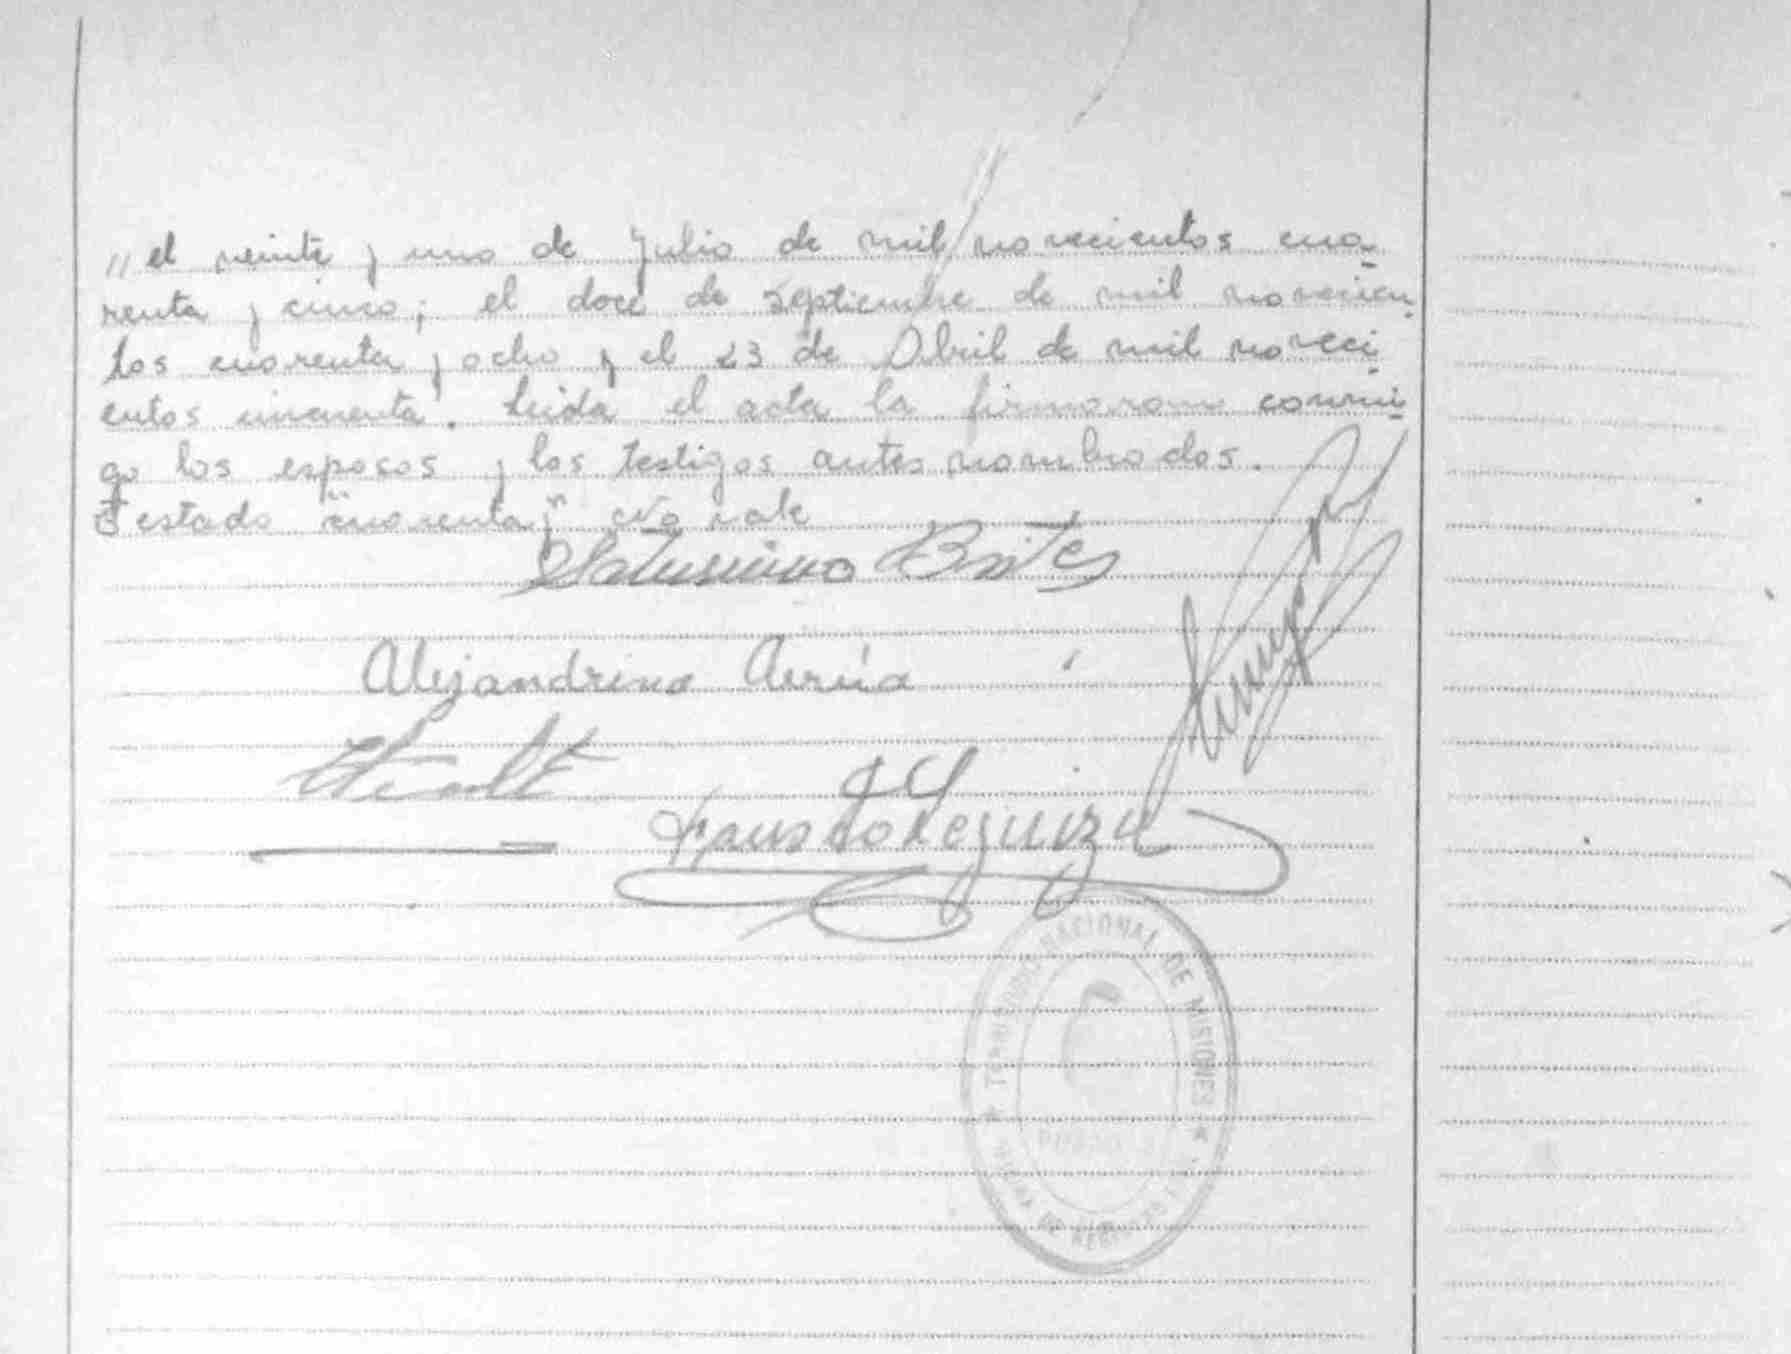 " el veinte y uno de Julio de mil novecientos cua-
renta y cinco; el doce de Septiembre de mil novecien-
tos cuarenta y ocho y el 23 de Abril de mil noveci-
entos cincuenta. Leida el acta la firmaron conmi-
go los esposos y los testigos antes nombrados.
Testado "cuarenta y" no vale
Saturnino Brites
Alejandrina
Fausto Leguiza
TERRITORIO NACIONAL DE MISIONES